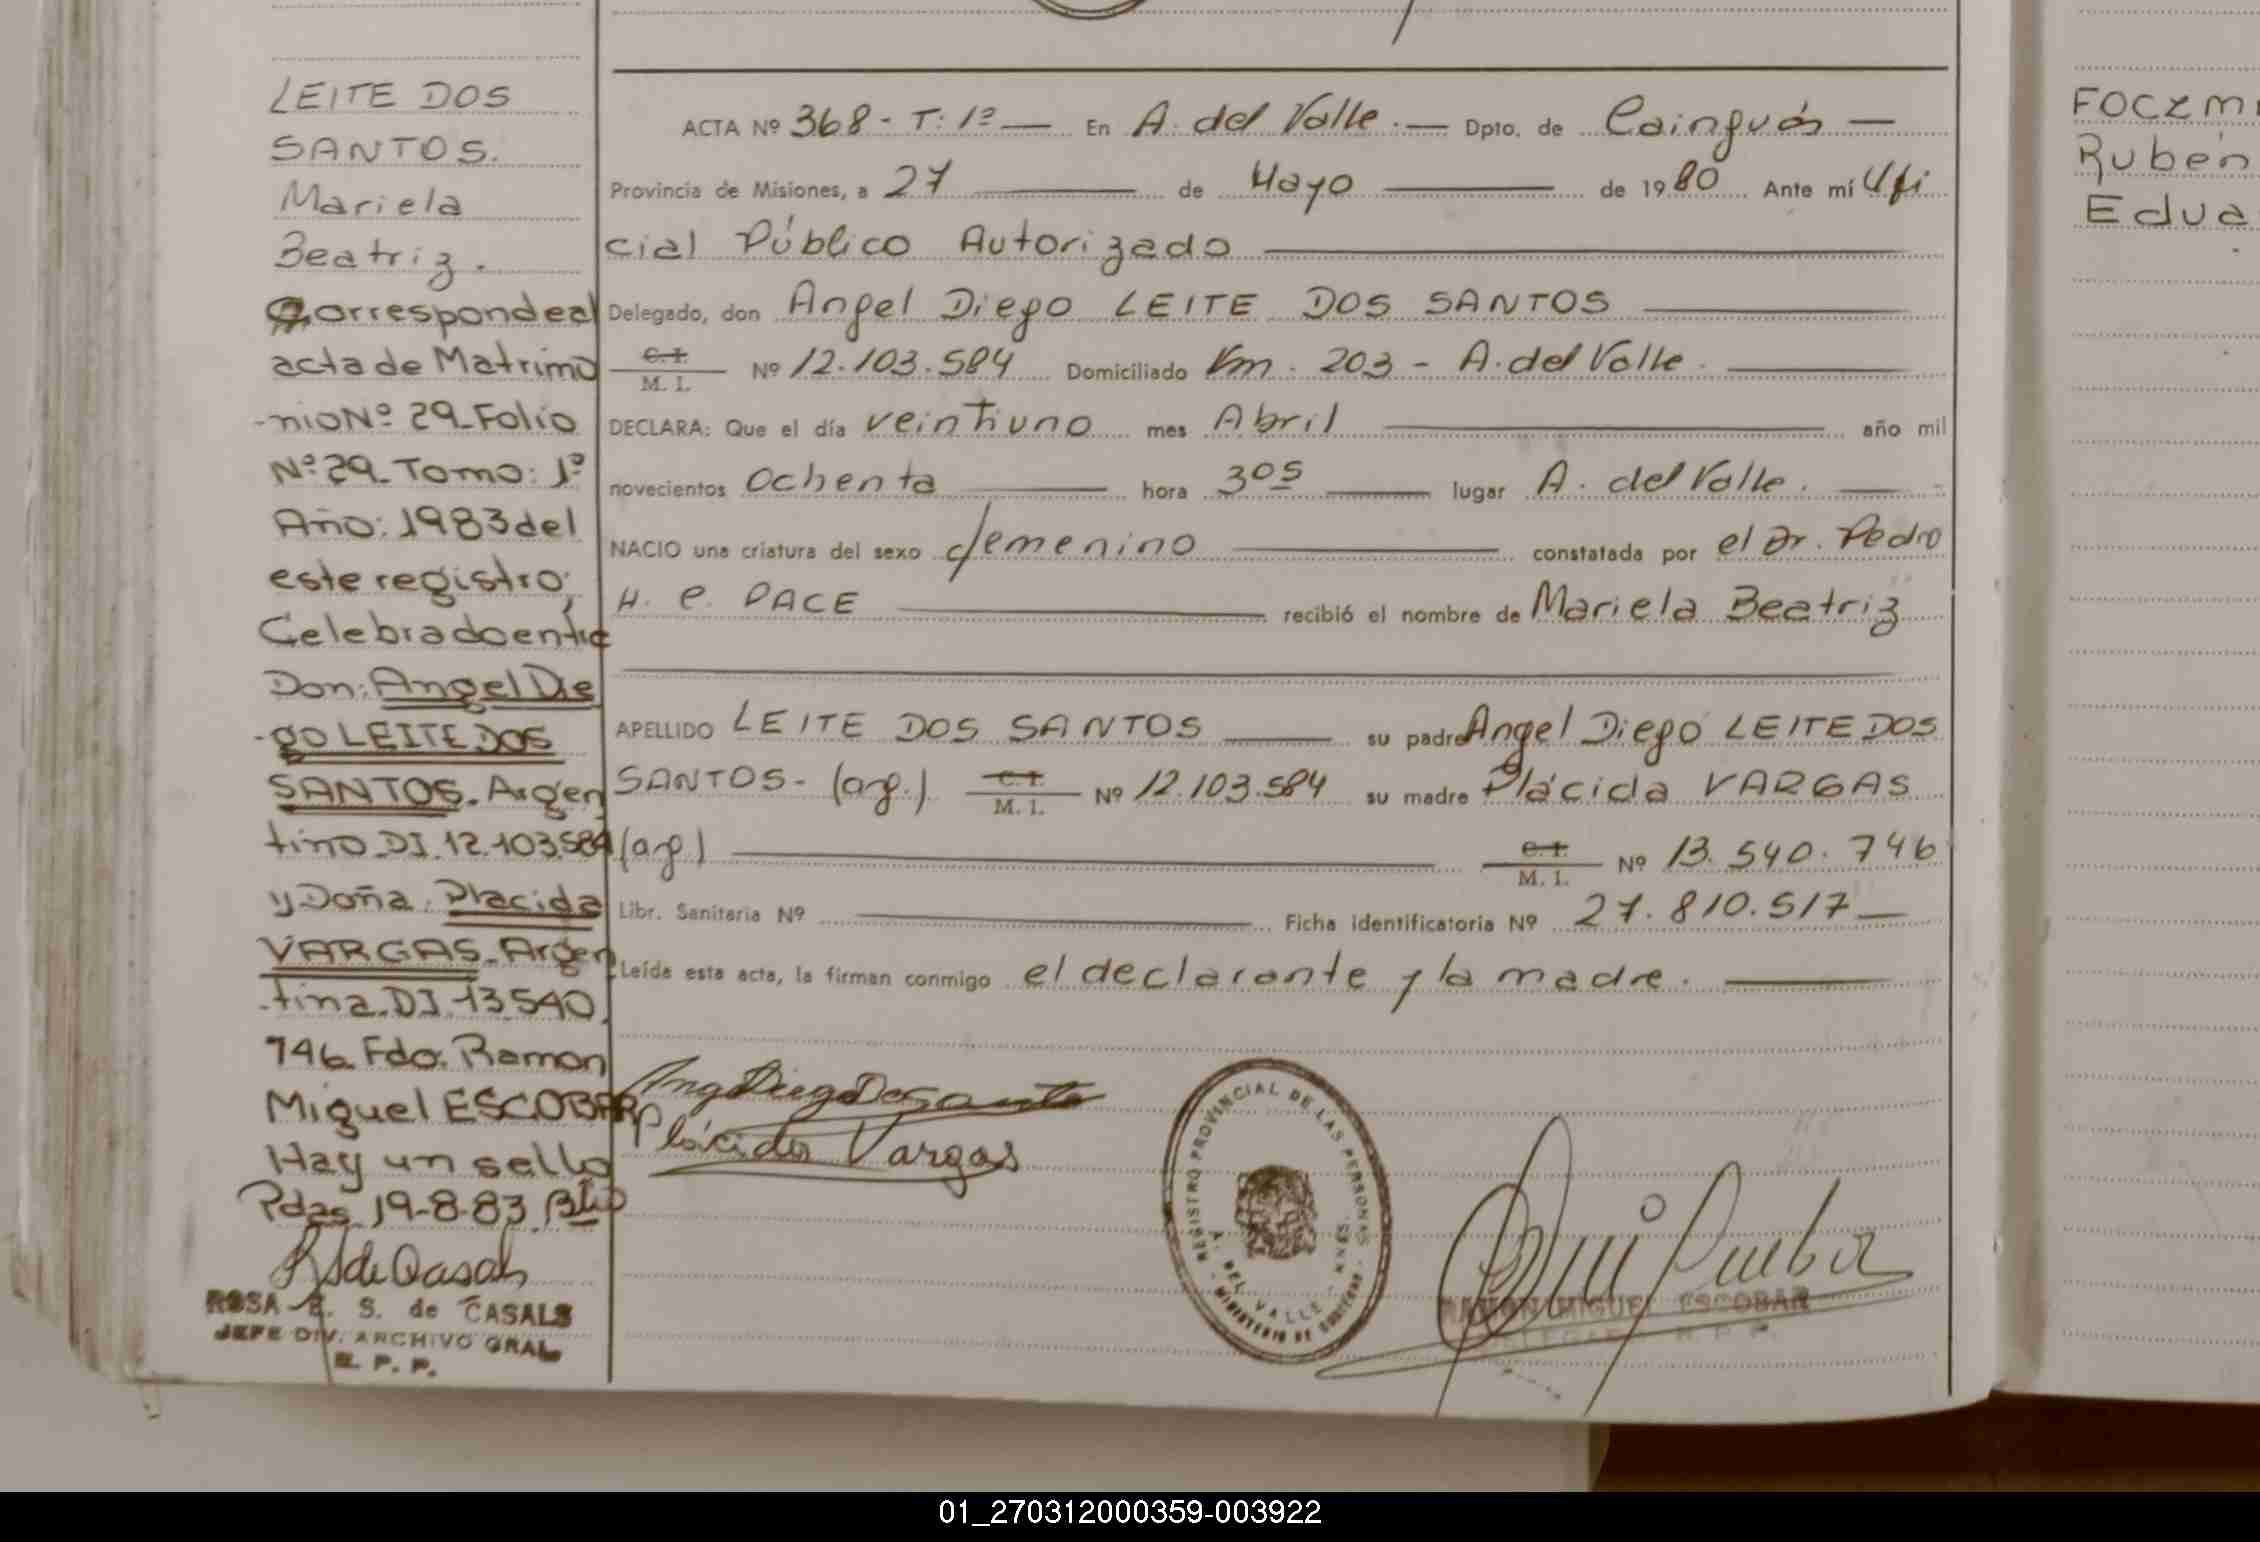 LEITE DOS
SANTOS.
Mariela
Beatriz.
Corresponde al
acta de Matrimo
-nio Nº 29 Folio
Nº 29 Tomo: 1º
Año: 1983 del
este registro;
Celebrado entre
Don: Angel Die
-go LEITE DOS
SANTOS. Argen
tino DI. 12.103.584
y Doña. Placida
VARGAS. Argen
-tina. DI. 13.540.
746. Fdo. Ramon
Miguel ESCOBAR
Hay un sello
Pdas 19-8-83
ROSA E. S. de CASALS
JEFE DIV. ARCHIVO GRAL
R. P. P.
ACTA Nº 368 - T: 1º — En A. del Valle. — Dpto. de Cainguás —
Provincia de Misiones, a 27 de Mayo de 1980 Ante mí Ofi
cial Público Autorizado
Delegado, don Angel Diego LEITE DOS SANTOS
C. I.
M. I. Nº 12.103.584 Domiciliado Km. 203 - A. del Valle.
DECLARA: Que el día veintiuno mes Abril año mil
novecientos ochenta hora 305 lugar A. del Valle.
NACIO una criatura del sexo femenino constatada por el Dr. Pedro
H. C. PACE recibió el nombre de Mariela Beatriz
APELLIDO LEITE DOS SANTOS su padre Angel Diego LEITE DOS
SANTOS - (arg.) C. I. M. I. Nº 12.103.584 su madre Plácida VARGAS
(arg) C. I. M. I. Nº 13.540.746
Libr. Sanitaria Nº Ficha identificatoria Nº 27.810.517 —
Leída esta acta, la firman conmigo el declarante y la madre.
Ang Diego Dosanto
Plácida Vargas
REGISTRO PROVINCIAL DE LAS PERSONAS
A. DEL VALLE - MNES.
MINISTERIO DE GOBIERNO
RAMON MIGUEL ESCOBAR
DELEGADO R. P. P.
Rubén
Edua
01_270312000359-003922